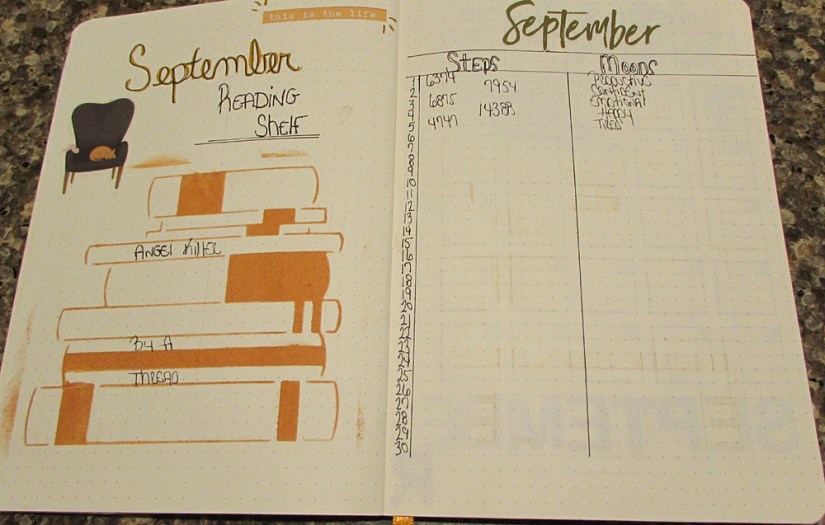 this is the life
September
READING
Shelf
ANGEL KILLER
By A
THREAD
September
STEPS MOODS
1 6374 PRODUCTIVE
2 7954 CONFIDENT
3 6875 EMOTIONAL
4 14388 HAPPY
5 4747 TIRED
6
7
8
9
10
11
12
13
14
15
16
17
18
19
20
21
22
23
24
25
26
27
28
29
30